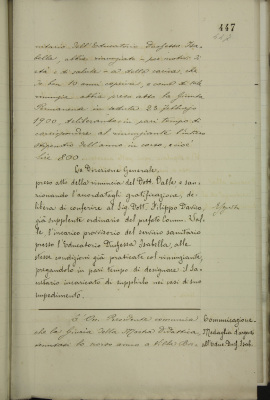 447
nitario dell'Educatorio Duchessa Isa-
bella, abbia rinunziato per motivi di
età e di salute a detta carica, che
da ben 10 anni copriva, e come di tale
rinunzia abbia preso atto la Giunta
Permanente in seduta 23 febbraio
1900, deliberando in pari tempo di
corrispondere al rinunziante l'intero
stipendio dell'anno in corso, cioè
lire 800.
La Direzione Generale,
preso atto della rinuncia del Dott. Valle e san-
zionando l'accordatagli gratificazione, de-
libera di conferire al Sig. Dott. Filippo
già supplente ordinario del prefato Comm. Val-
le l'incarico provvisorio del servizio sanitario
presso l'Educatorio Duchessa Isabella, alle
stesse condizioni già praticate col rinunziante,
pregandolo in pari tempo di designare il Sa-
nitario incaricato di supplirlo nei casi di suo
impedimento.
Il Presidente comunica
che la Giuria della Mostra Didattica,
Comunicazione
Medaglia d'argento